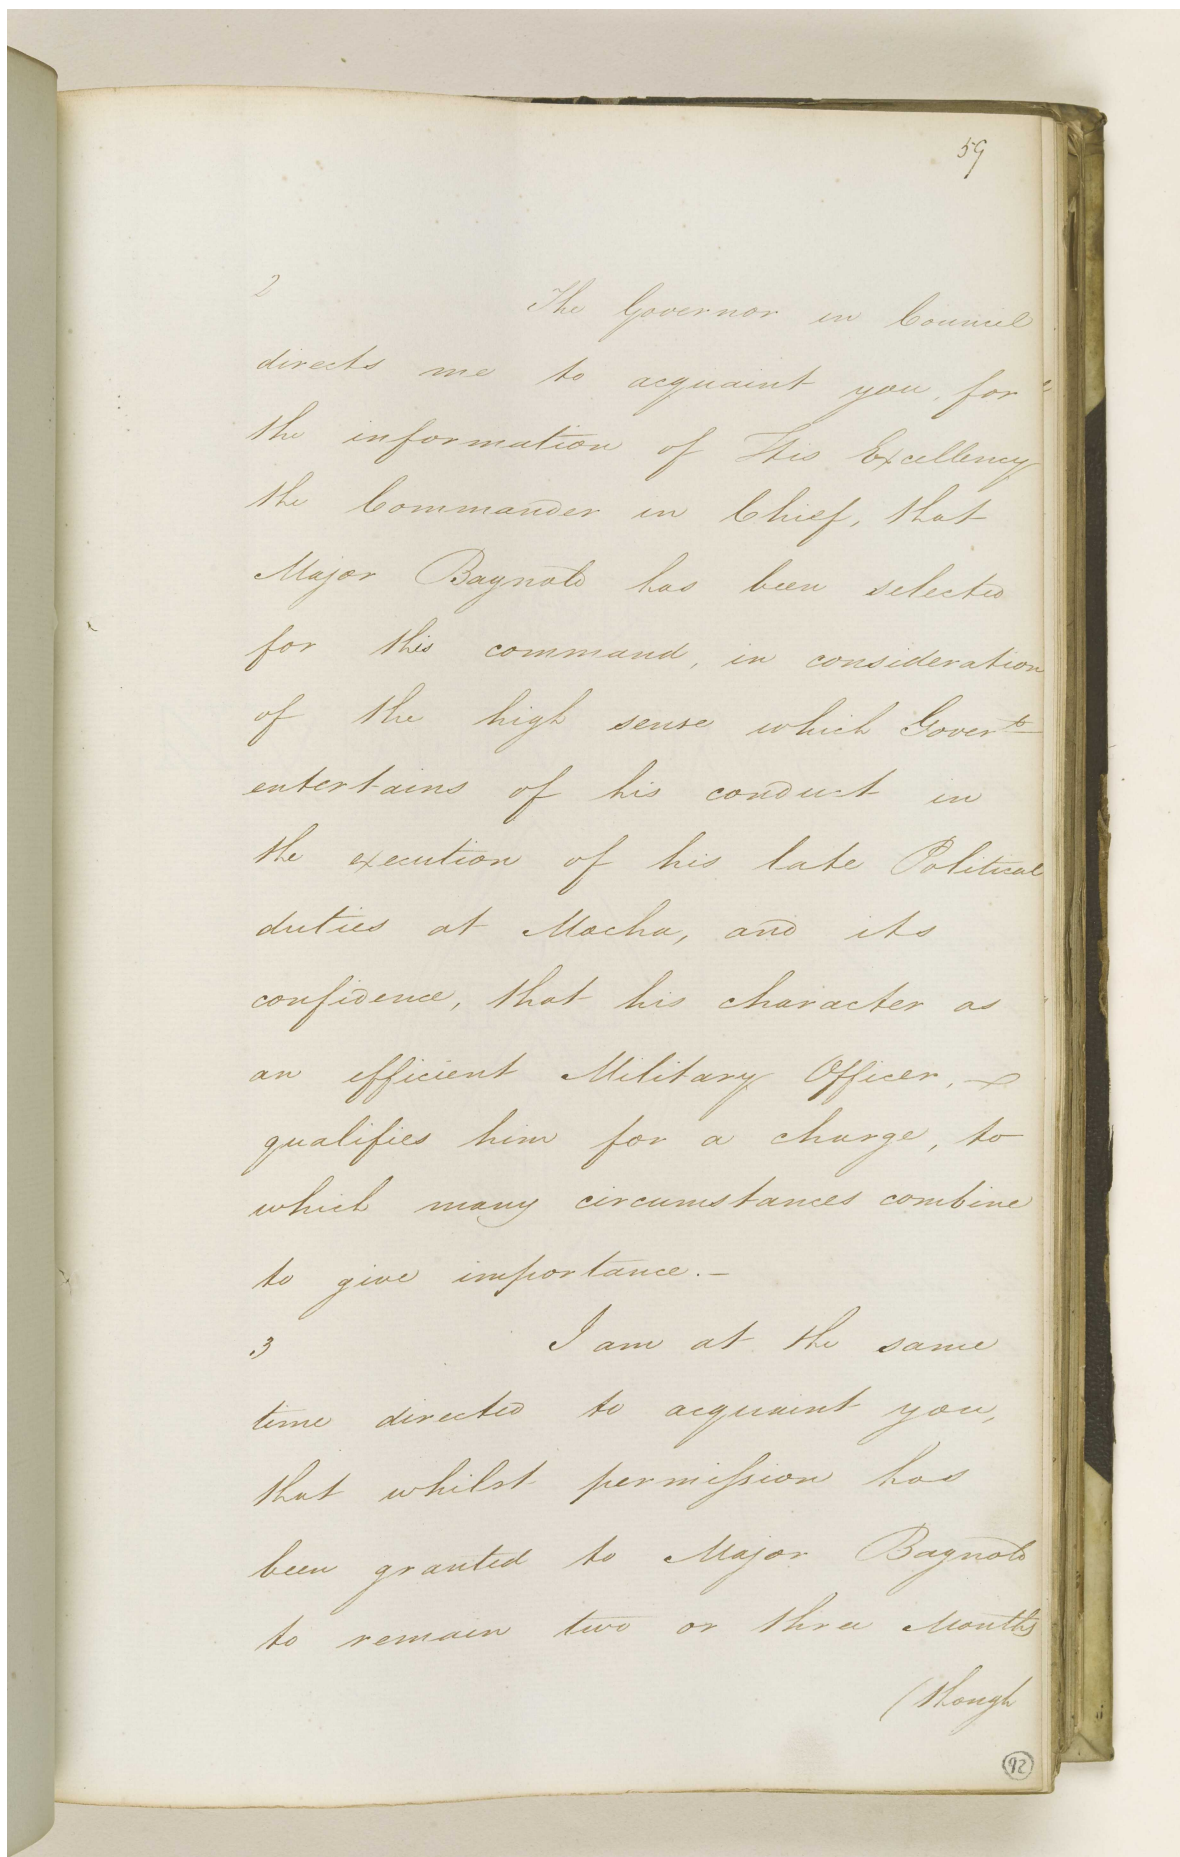 59
2 The Governor in Council
directs me to acquaint you, for
the information of His Excellency
the Commander in Chief, that
Major Bagnold has been selected
for this command, in consideration
of the high sense which Govert
entertains of his conduct in
the execution of his late Political
duties at Mocha, and its
confidence, that his character as
an efficient Military Officer,
qualifies him for a charge, to
which many circumstances combine
to give importance.—
3 I am at the same
time directed to acquaint you,
that whilst permission has
been granted to Major Bagnold
to remain two or three Months
(though
92